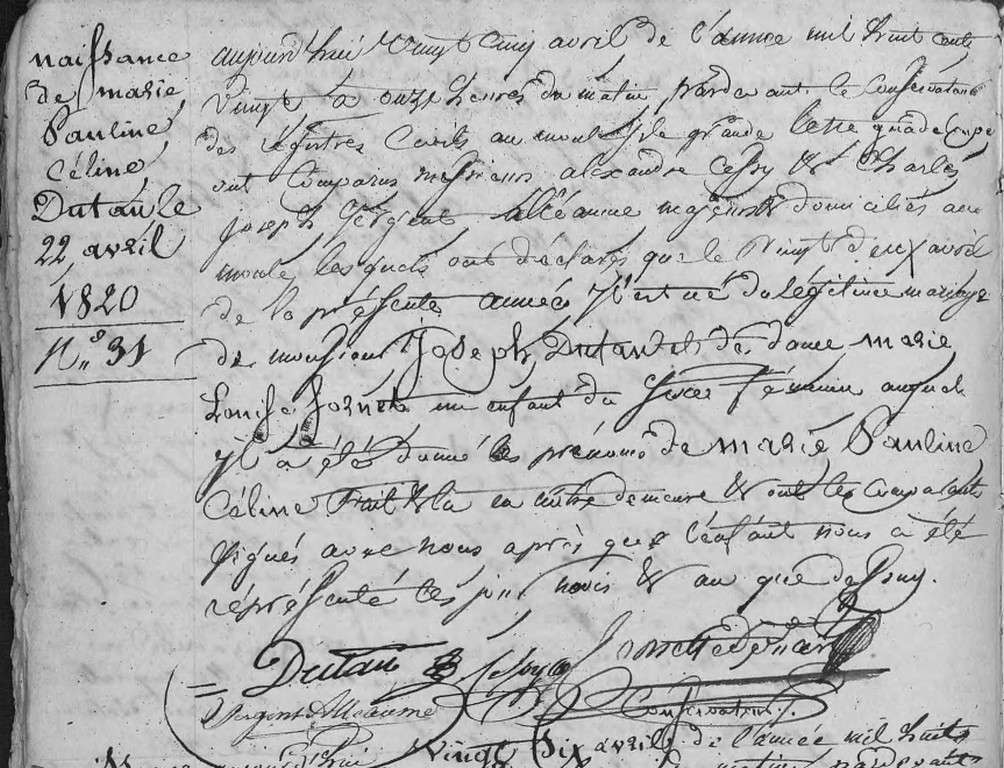 naissance
de marie
Pauline
Céline
Dutaule
22 avril
1820
N.º 31
aujourd'hui Vingt Cinq avril de l'année mil huit cent
Vingt à onze heures du matin, pardevant le Conservateur
des régistres Civils au moule isle grande terre guadeloupe
ont Comparus messieurs alexandre Cesry & Charles
joseph Sergent alléaume majeurs & domiciliés au
moule, lesquels ont déclarés que le Vingt deux avril
de la présente année il est né du légitime mariage
de monsieur Joseph Dutaule & de dame marie
Louise Jornet un enfant du sexe féminin auquel
il a été donné les prénoms de marie Pauline
Céline Fait & lu en notre demeure & ont les Comparants
signés avec nous après que l'enfant nous a été
réprésenté les jour mois & an que dessus.
Dutau
Sergent alléaume
Conservateur
Vingt Six avril de l'année mil huit